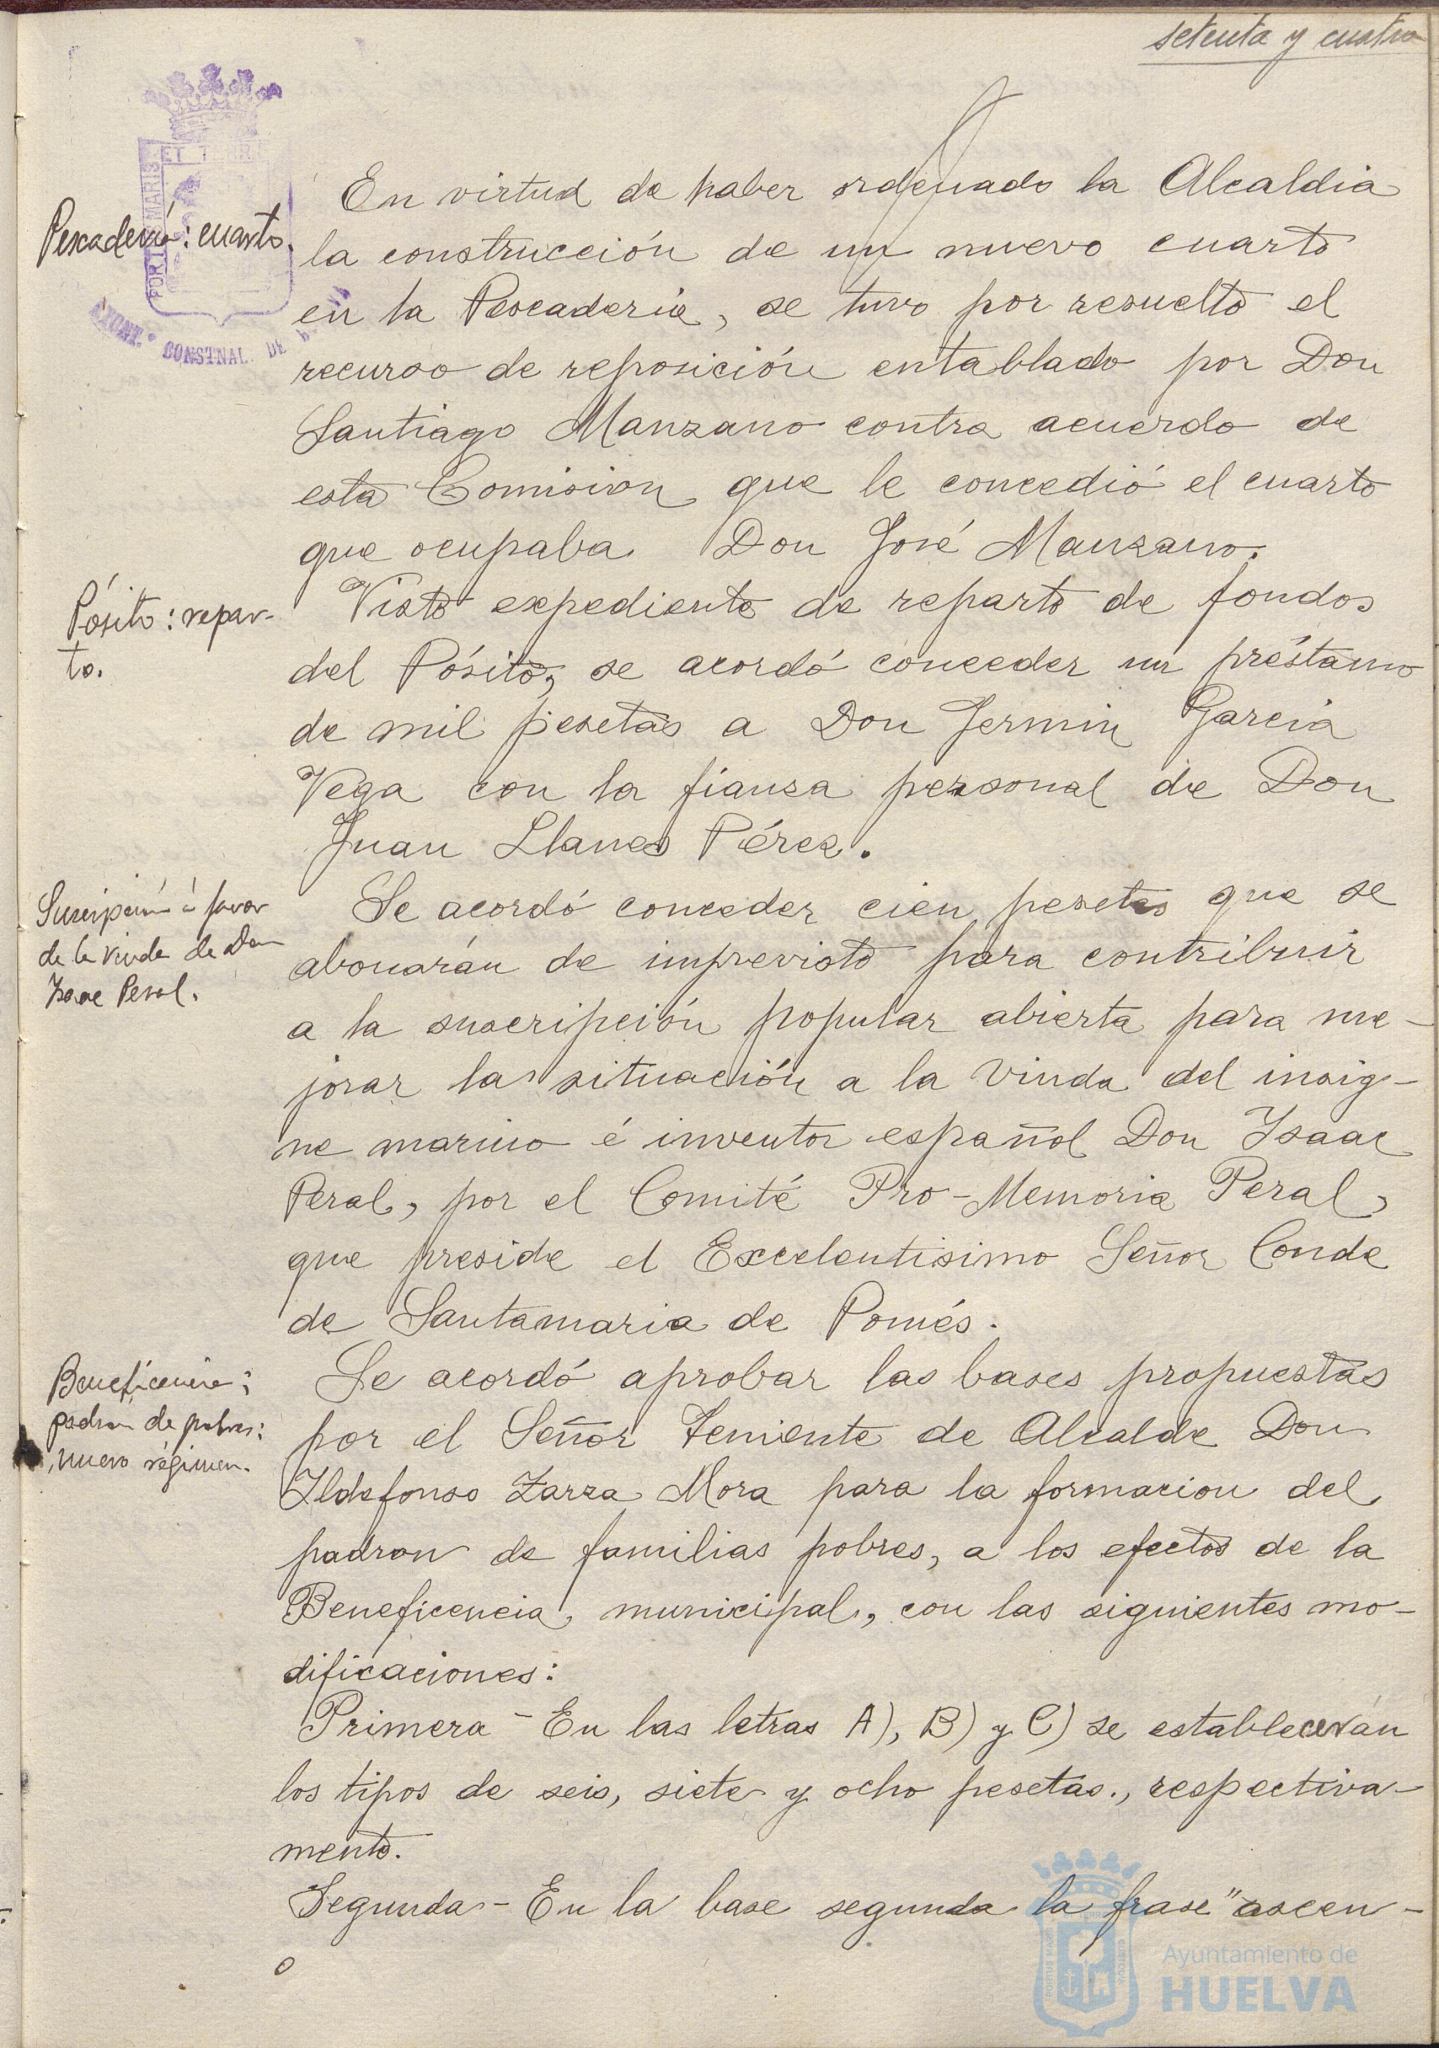 setenta y cuatro
Pescadería: cuarto.
En virtud de haber ordenado la Alcaldia
la construcción de un nuevo cuarto
en la Pescaderia, se tuvo por resuelto el
recurso de reposición entablado por Don
Santiago Manzano contra acuerdo de
esta Comision que le concedió el cuarto
que ocupaba Don José Manzano.
Pósito: repar-
to.
Visto expediente de reparto de fondos
del Pósito, se acordó conceder un préstamo
de mil pesetas a Don Fermin Garcia
Vega con la fianza personal de Don
Juan Llanes Pérez.
Suscripción á favor
de la viuda de Don
Isaac Peral.
Se acordó conceder cien pesetas que se
abonarán de imprevisto para contribuir
a la suscripción popular abierta para me-
jorar la situación a la Viuda del insig-
ne marino é inventor español Don Isaac
Peral, por el Comité Pro-Memoria Peral,
que preside el Excelentisimo Señor Conde
de Santamaria de Pomés.
Beneficencia:
padrón de pobres:
nuevo régimen.
Se acordó aprobar las bases propuestas
por el Señor Teniente de Alcalde Don
Ildefonso Zarza Mora para la formacion del
padron de familias pobres, a los efectos de la
Beneficencia municipal, con las siguientes mo-
dificaciones:
Primera - En las letras A), B) y C) se establecerán
los tipos de seis, siete y ocho pesetas., respectiva-
mente.
Segunda - En la base segunda la frase "ascen-
PORTUS MARIS ET TERRE
AYUNT.º CONSTNAL. DE
Ayuntamiento de
HUELVA